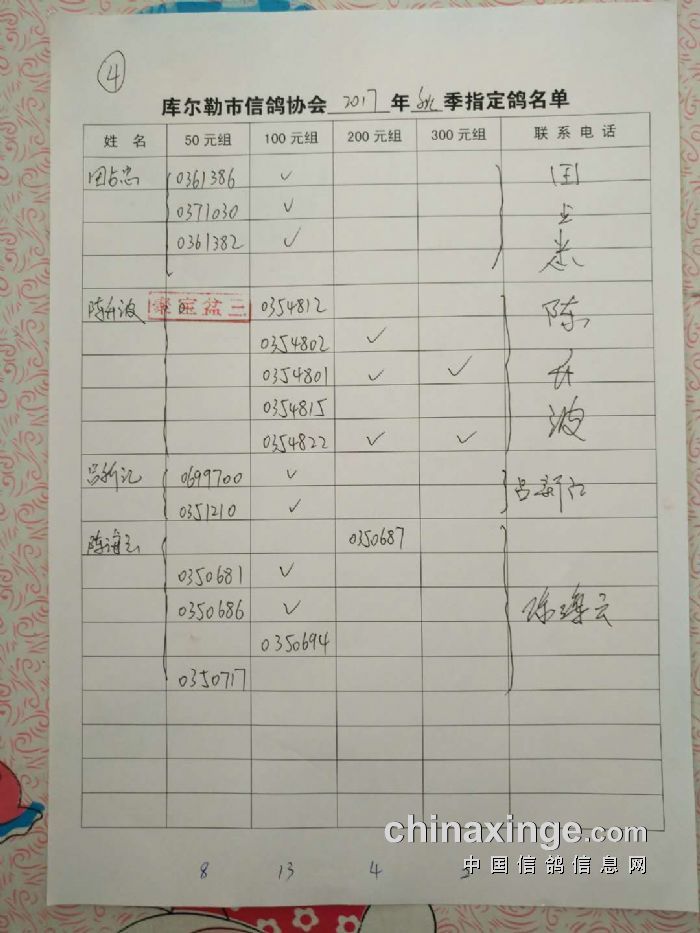 ④
库尔勒市信鸽协会 2017 年 秋 季指定鸽名单
姓 名 50 元组 100 元组 200 元组 300 元组 联 系 电 话
田占忠 0361386 ✓ 田
0371030 ✓ 占
0361382 ✓ 忠
陈升波 0354812 陈
0354802 ✓
0354801 ✓ ✓ 升
0354815 波
0354822 ✓ ✓
吕新江 0699700 ✓ 吕新江
0351210 ✓
陈海云 0350687
0350681 ✓
0350686 ✓
0350694
0350717
8 13 4
chinaxinge.com
中国信鸽信息网